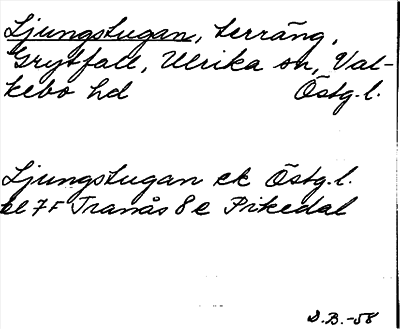 Ljungstugan, terräng,
Grytfall, Ulrika sn, Val-
kebo hd Östg.l.
Ljungstugan ek Östg.l.
bl 7F Tranås 8e Pikedal
D.B.-58